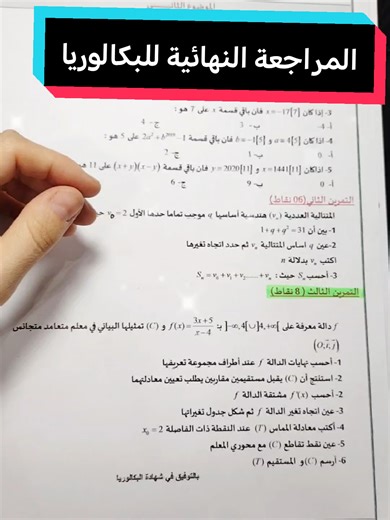 الموضوع الثاني
المراجعة النهائية للبكالوريا
3- إذا كان x ≡ -17[7] فان باقي قسمة x على 7 هو :
أ- 4- ب- 3 ج- 4
4- إذا كان a ≡ 4[5] و b ≡ -1[5] فان باقي قسمة على 5 هو :
أ- 0 ب- 1 ج- 2
5- اذا كان x ≡ 1441[11] و y ≡ 2020[11] فان باقي قسمة (x+y)(x-y) على 11 هو
أ- 0 ب- 9 ج- 6
التمرين الثاني (06 نقاط)
المتتالية العددية (vₙ) هندسية أساسها q موجب تماما حدها الأول v₀ = 2
1- بين أن 1+q+q² = 31
2- عين q اساس المتتالية vₙ ثم حدد اتجاه تغيرها
اكتب vₙ بدلالة n
3- أحسب Sₙ حيث : Sₙ = v₀ + v₁ + v₂ ...... + vₙ
التمرين الثالث (8 نقاط)
f دالة معرفة على ]-∞,4[∪]4,+∞[ بـ: f(x) = (3x+5)/(x-4) و (C) تمثيلها البياني في معلم متعامد متجانس
(O;i,j)
1- أحسب نهايات الدالة f عند أطراف مجموعة تعريفها
2- استنتج أن (C) يقبل مستقيمين مقاربين يطلب تعيين معادلتهما
2- أحسب f'(x) مشتقة الدالة f
3- عين اتجاه تغير الدالة f ثم شكل جدول تغيراتها
4- أكتب معادلة المماس (T) عند النقطة ذات الفاصلة x₀ = 2
5- عين نقط تقاطع (C) مع محوري المعلم
6- أرسم (C) و المستقيم (T)
بالتوفيق في شهادة البكالوريا